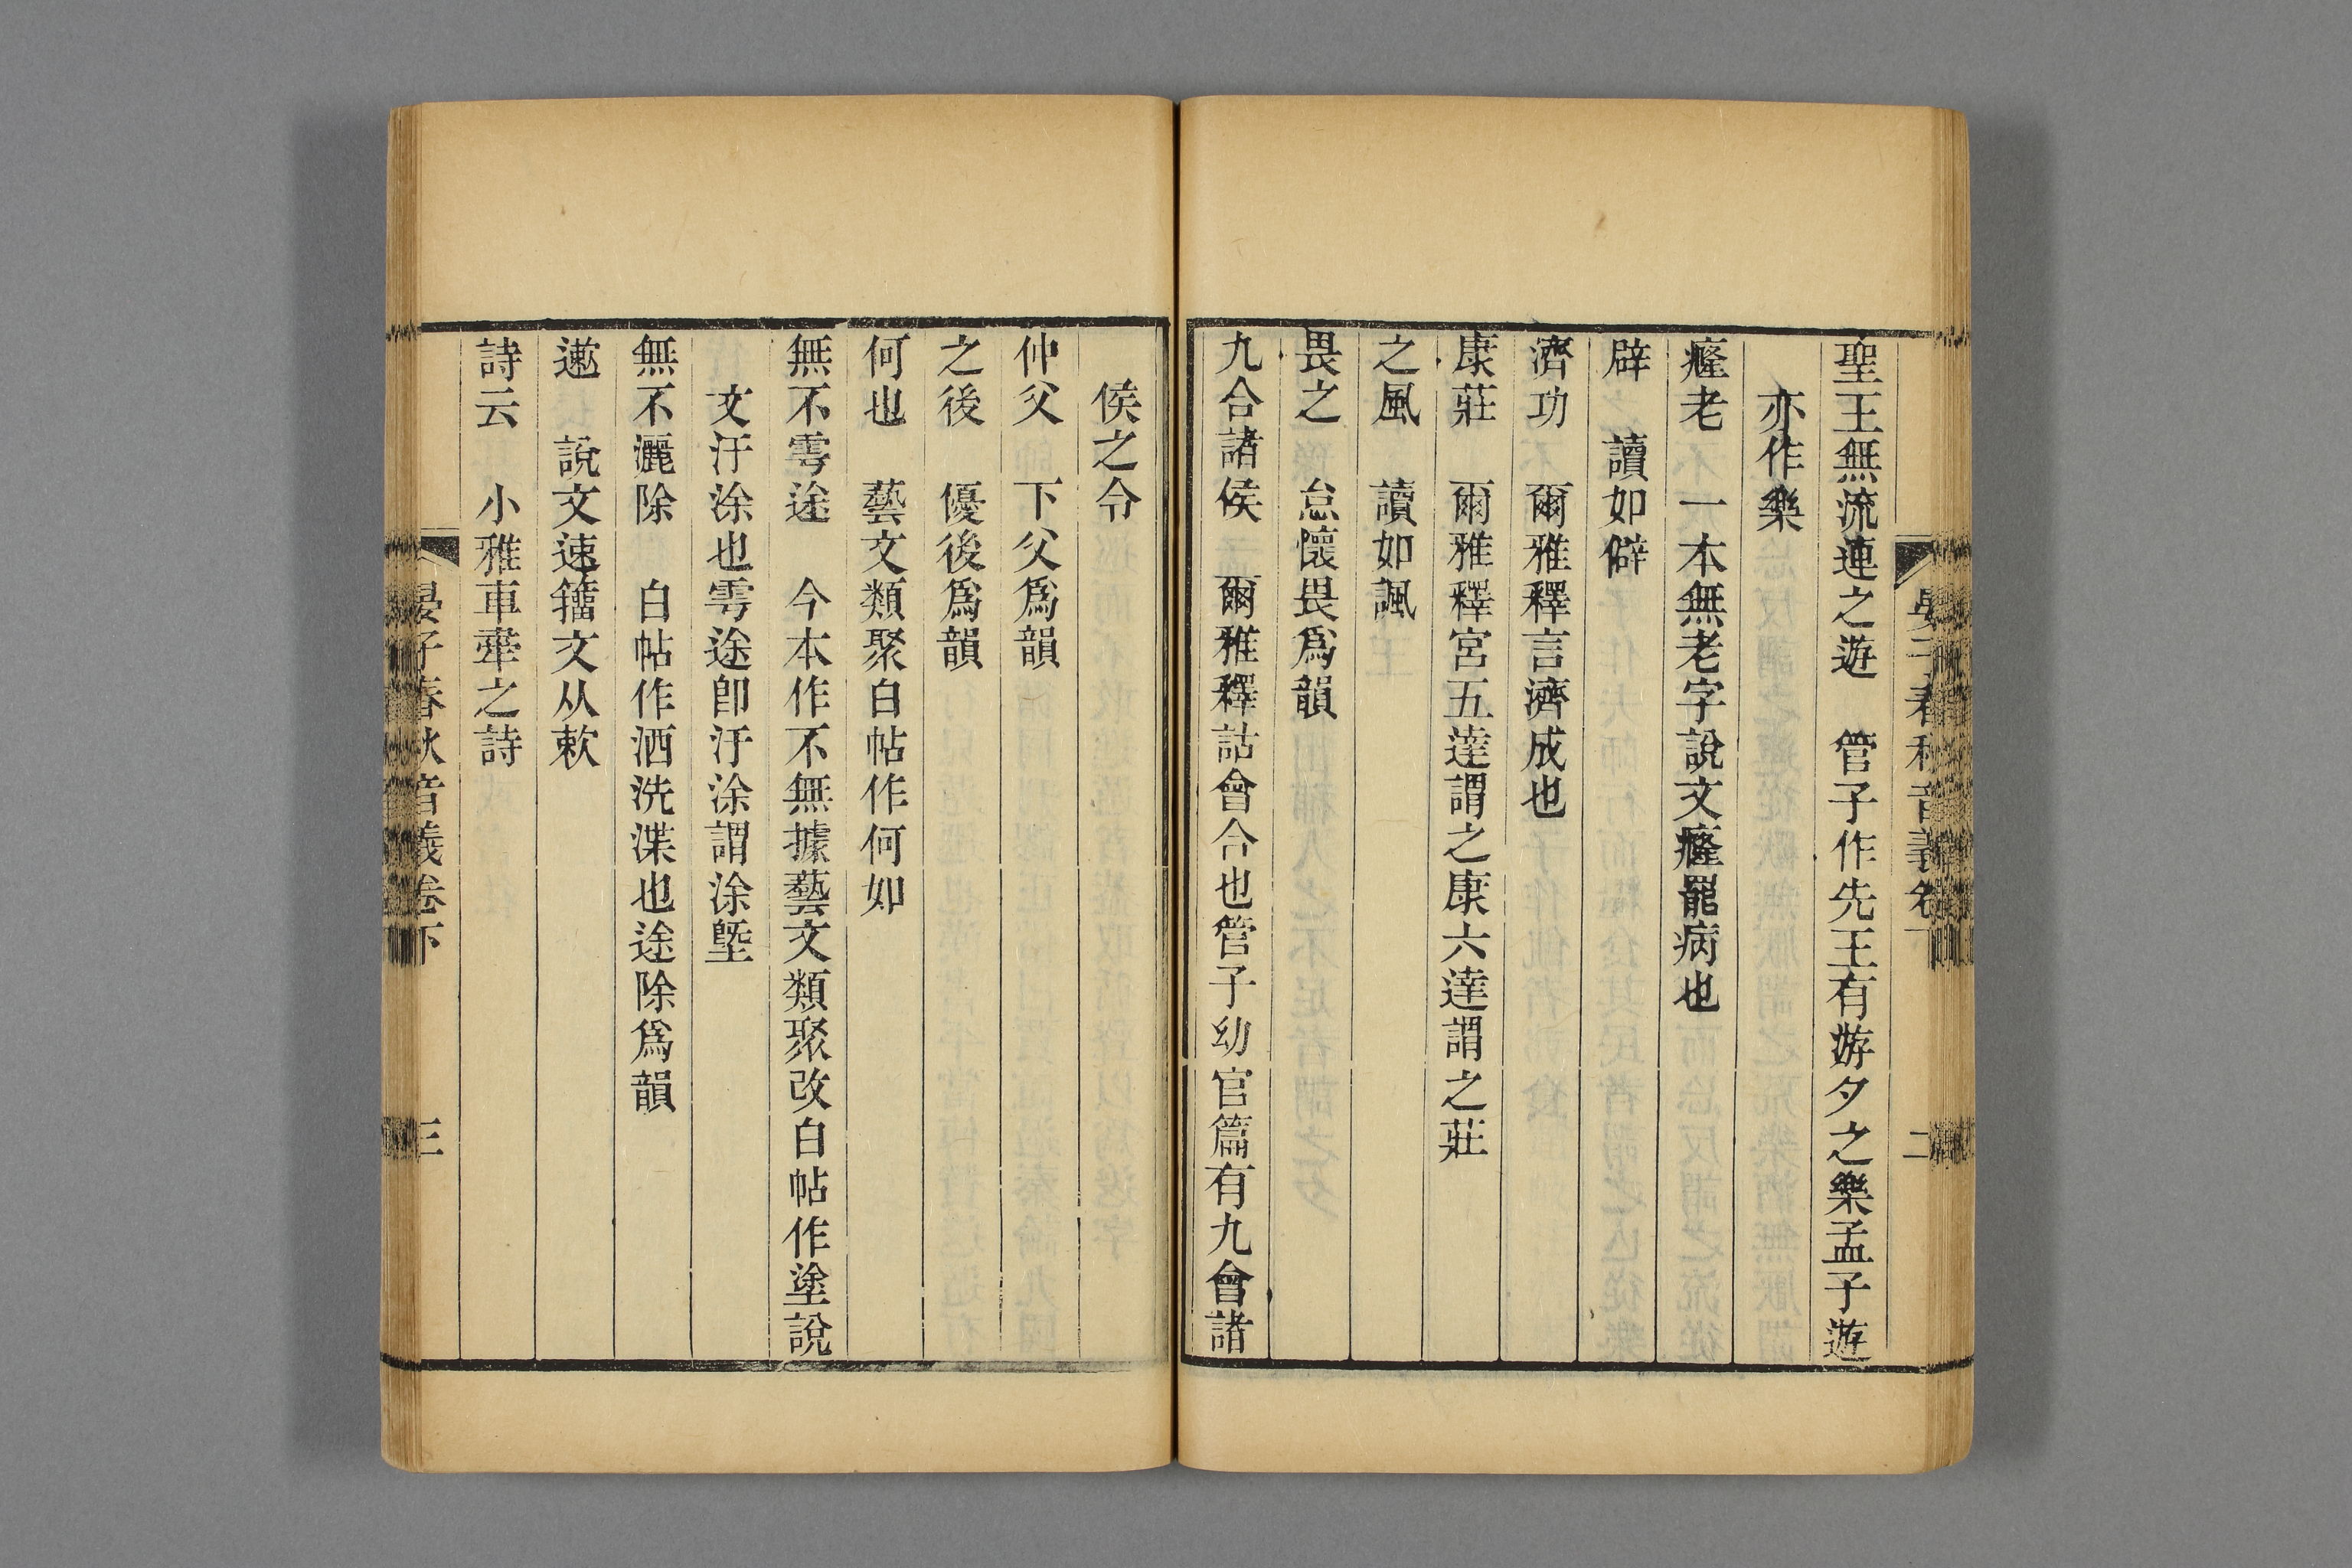 晏子春秋音義卷下
二
聖王無流連之遊　管子作先王有游夕之樂孟子遊
亦作樂
癃老　一本無老字說文癃罷病也
辟　讀如僻
濟功　爾雅釋言濟成也
康莊　爾雅釋宮五達謂之康六達謂之莊
之風　讀如諷
畏之　怠懷畏爲韻
九合諸侯　爾雅釋詁會合也管子幼官篇有九會諸
侯之令
仲父　下父爲韻
之後　優後爲韻
何也　藝文類聚白帖作何如
無不雩途　今本作不無據藝文類聚改白帖作塗說
文汙涂也雩途卽汙涂謂涂墍
無不灑除　白帖作洒洗渫也途除爲韻
遬　說文速籀文从欶
詩云　小雅車舝之詩
晏子春秋音義卷下
三